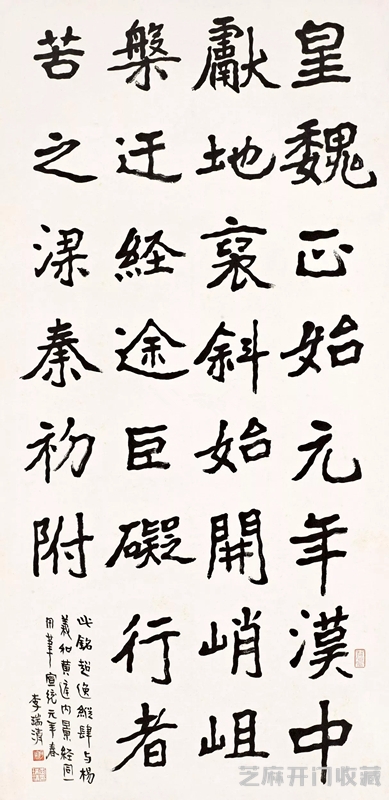 皇魏正始元年漢中
獻地裦斜始開峭岨
槃迂経途巨礙行者
苦之梁秦初附
此銘超逸縱肆与楊
羲和黄庭内景経同一
用筆宣統元年春
李瑞清
芝麻开门收藏